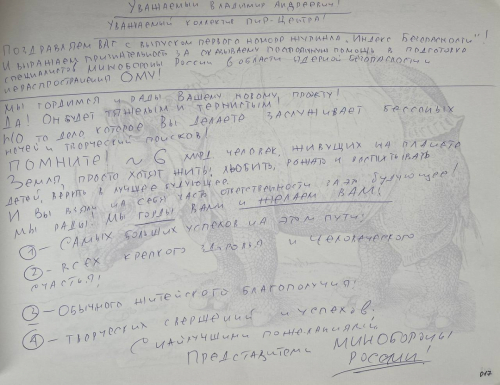 Уважаемый Владимир Андреевич!
Уважаемый коллектив ПИР-Центра!
Поздравляем Вас с выпуском первого номера журнала „Индекс Безопасности"!
И выражаем признательность за оказываемую помощь в подготовке
специалистов Минобороны России в области ядерной безопасности и
нераспространения ОМУ!
Мы гордимся и рады Вашему новому проекту!
Да! Он будет тяжелым и тернистым!
Но то дело которое Вы делаете заслуживает бессоных
ночей и творческий поисков!
ПОМНИТЕ! ~ 6 млрд. человек, живущих на планете
Земля, просто хотят жить, любить, рожать и воспитывать
детей, верить в лучшее будующее.
И Вы взяли на себя часть ответственности за это будующее!
Мы рады. Мы горды Вами и желаем Вам!
1 - Самых больших успехов на этом пути;
2 - Всех крепкого здоровья и человеческого
счастья!
3 - Обычного житейского благополучия!
4 - Творческих свершений и успехов!
С наилучшими пожеланиями
Представители МИНОБОРОНЫ
РОССИИ!